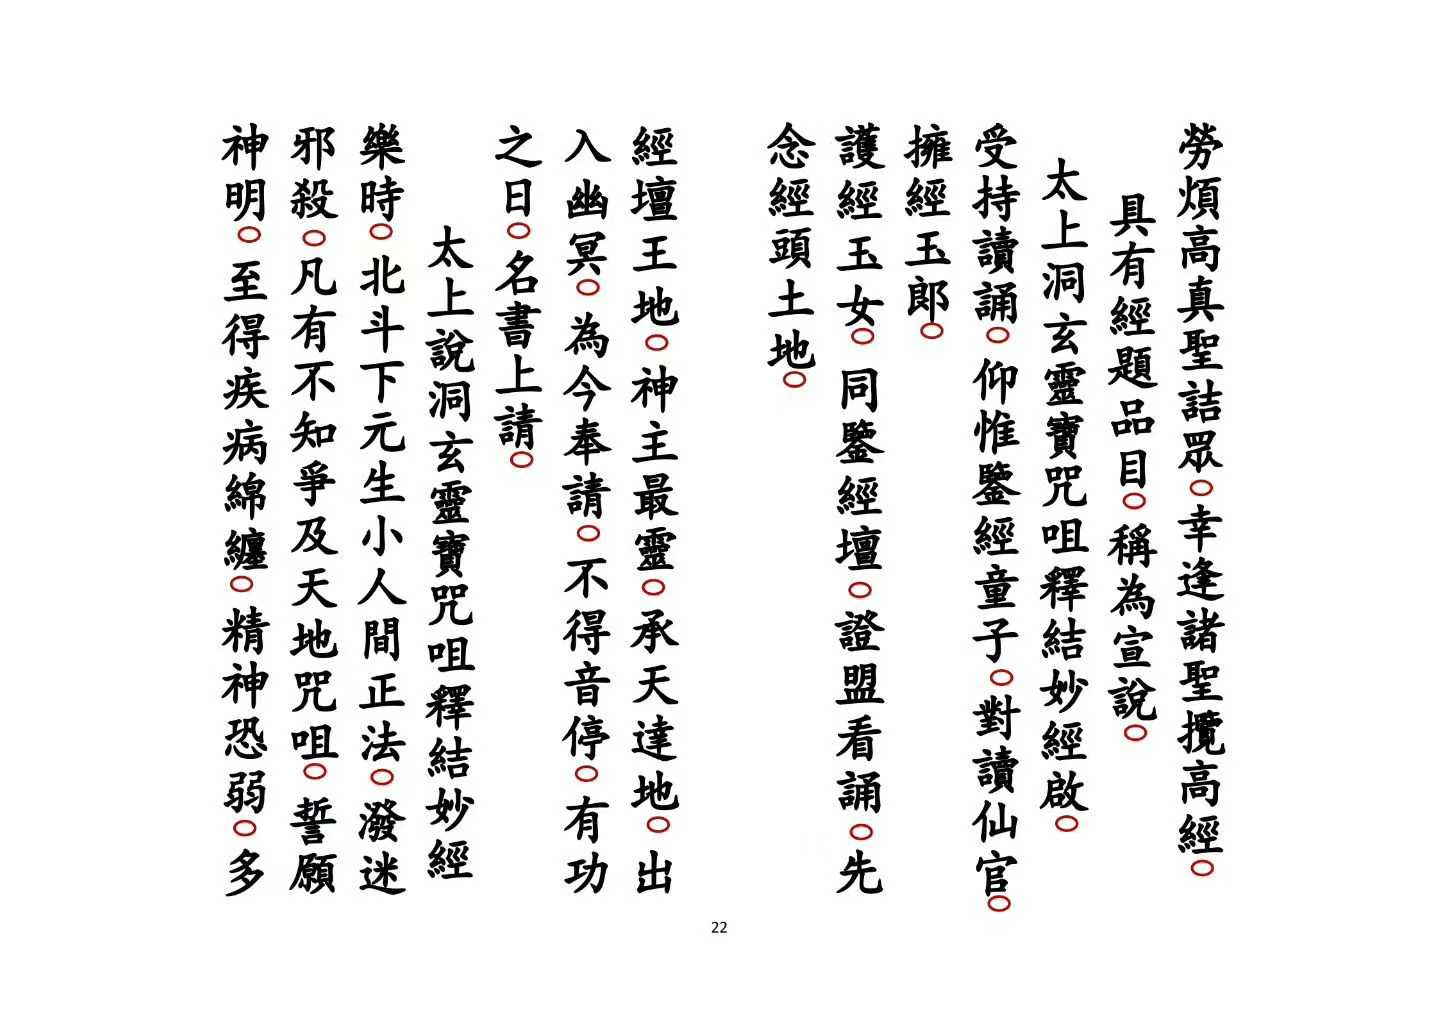 勞煩高真聖詰眾○幸逢諸聖攬高經○
具有經題品目○稱為宣說○
太上洞玄靈寶咒咀釋結妙經啟○
受持讀誦○仰惟鑒經童子○對讀仙官○
擁經玉郎○
護經玉女○同鑒經壇○證盟看誦○先
念經頭土地○
經壇王地○神主最靈○承天達地○出
入幽冥○為今奉請○不得音停○有功
之日○名書上請○
太上說洞玄靈寶咒咀釋結妙經
樂時○北斗下元生小人間正法○潑迷
邪殺○凡有不知爭及天地咒咀○誓願
神明○至得疾病綿纏○精神恐弱○多
22